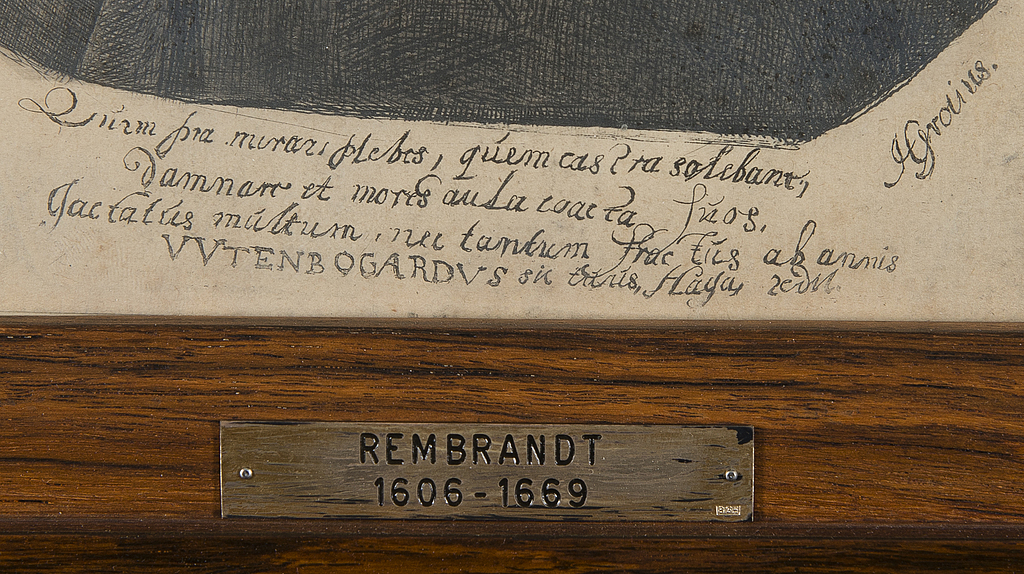 Quem pia mirari plebes, quem castra solebant,
Damnare et mores aula coacta suos.
Jactatus multum, nec tantum fractus ab annis
VVTENBOGARDVS sic tuus, Haga, redit.
HGrotius.
REMBRANDT
1606-1669